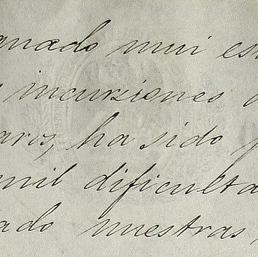 anado mui es
incursiones
aros, ha sido
mil dificulta
ado nuestras